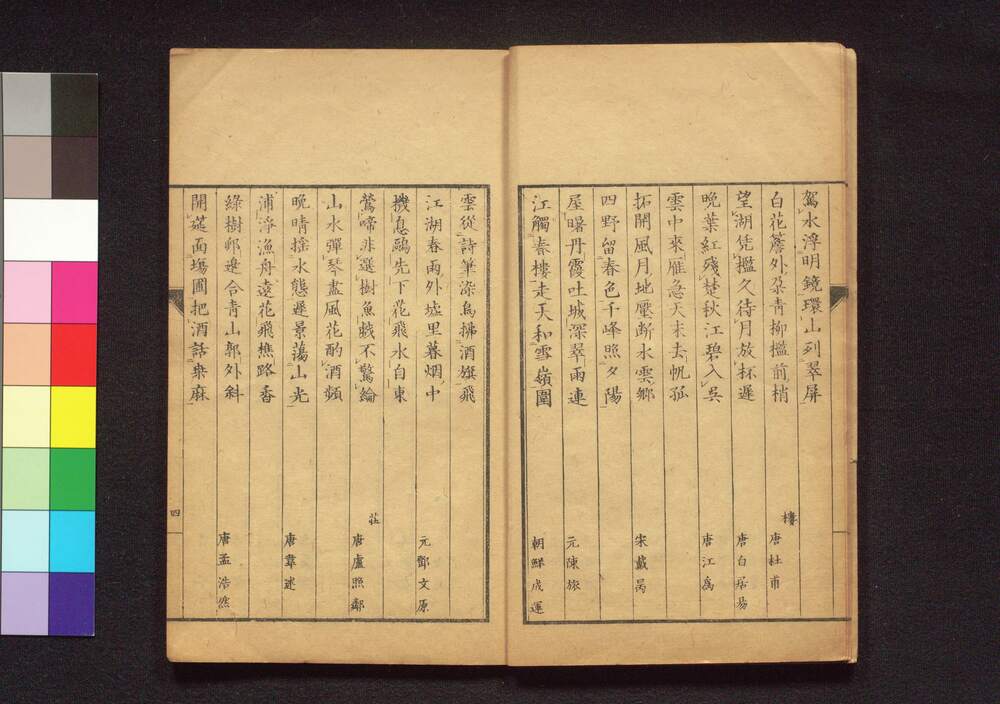 駕水浮明鏡環山列翠屏
白花簷外朶青柳檻前梢 樓 唐杜甫
望湖凭檻久待月放杯遲 唐白居易
晚葉紅殘楚秋江碧入吳 唐江為
雲中來雁急天末去帆孤
拓開風月地壓斷水雲鄉 宋戴昺
四野留春色千峰照夕陽
屋曙丹霞吐城深翠雨連 元陳旅
江觸春樓走天和雪嶺圍 朝鮮成運
雲從詩筆染鳥拂酒旗飛
江湖春雨外墟里暮烟中 元鄧文原
機息鷗先下花飛水自東
鶯啼非選樹魚戲不驚綸 莊 唐盧照鄰
山水彈琴盡風花酌酒頻
晚晴搖水態遲景蕩山光 唐韋述
浦淨漁舟遠花飛樵路香
綠樹邨邊合青山郭外斜 唐孟浩然
開筵面場圃把酒話桑麻
四